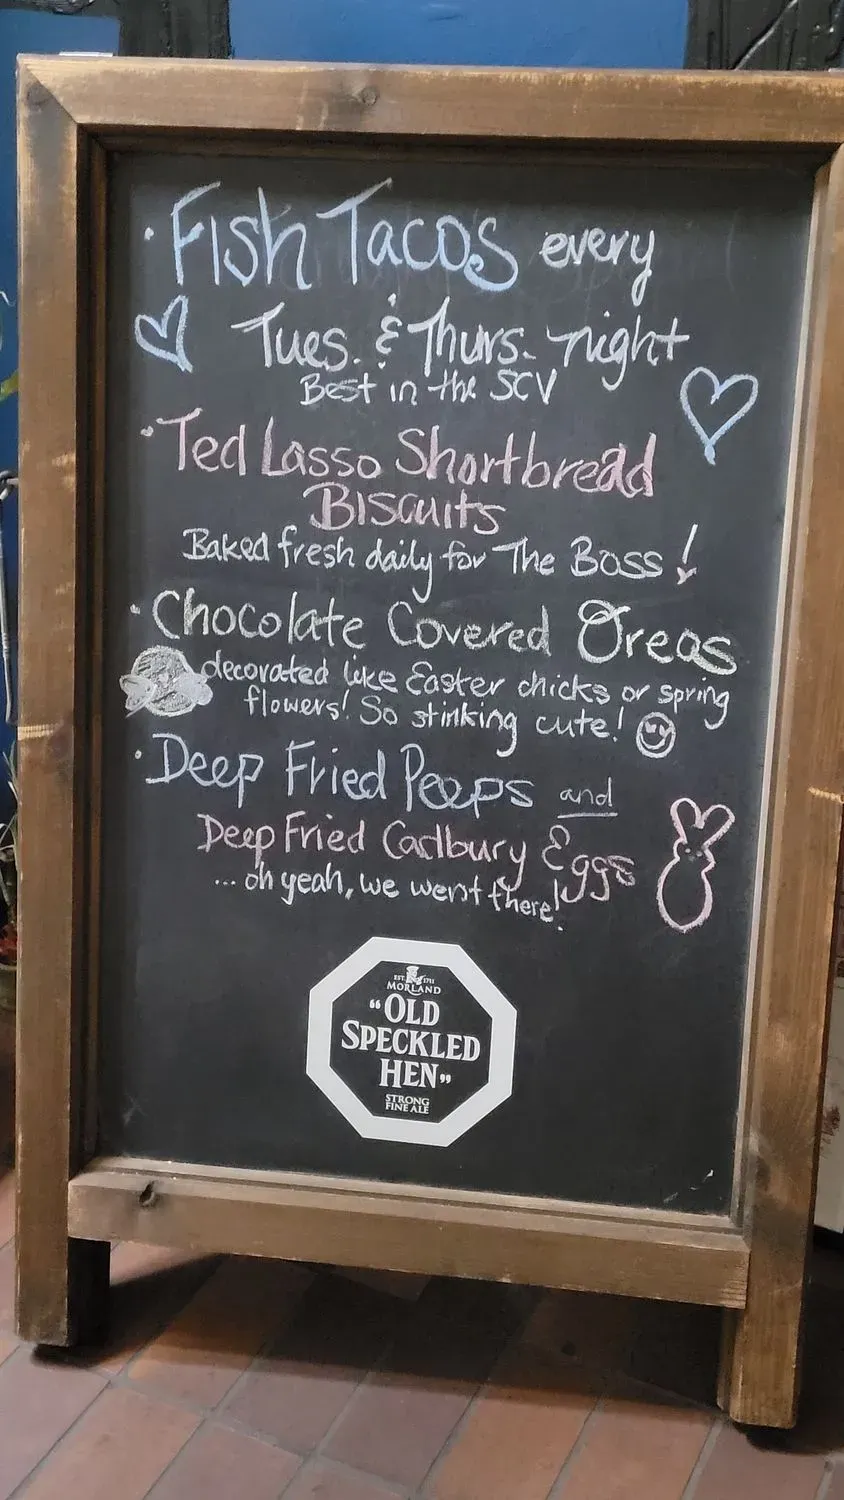 · Fish Tacos every
Tues. & Thurs. night
Best in the SCV
· Ted Lasso Shortbread
Biscuits
Baked fresh daily for The Boss!
· Chocolate Covered Oreos
decorated like Easter chicks or spring
flowers! So stinking cute!
· Deep Fried Peeps and
Deep Fried Cadbury Eggs
... oh yeah, we went there!
EST. 1711
MORLAND
"OLD
SPECKLED
HEN"
STRONG
FINE ALE